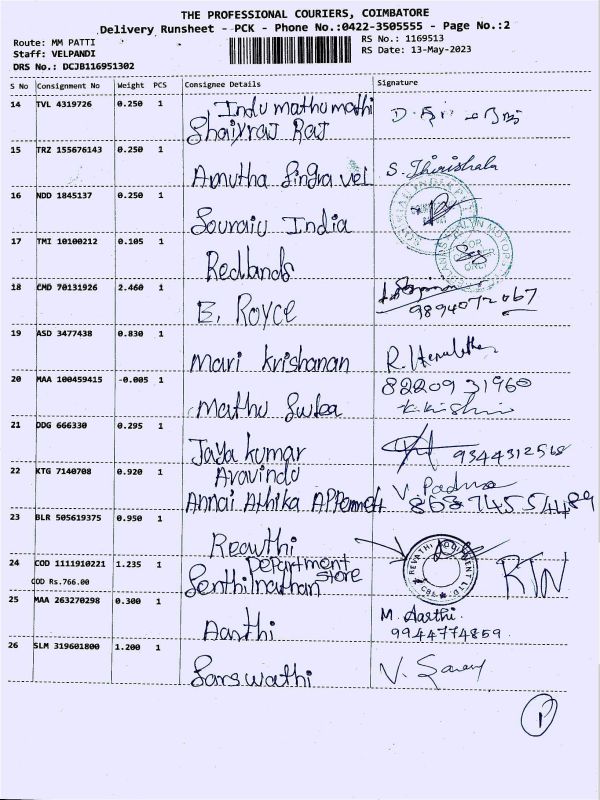 THE PROFESSIONAL COURIERS, COIMBATORE
Delivery Runsheet - PCK - Phone No.:0422-3505555 - Page No.:2
Route: MM PATTI
RS No.: 1169513
Staff: VELPANDI
RS Date: 13-May-2023
DRS No.: DCJB116951302
S No Consignment No Weight PCS Consignee Details Signature
14 TVL 4319726 0.250 1 Indumathumathi
Shaiyraj Raj
15 TRZ 155676143 0.250 1
Amutha Singra vel S. Thirishala
16 NDD 1845137 0.250 1
Souraiu India
17 TMI 10100212 0.105 1
Redlands
18 CMD 70131926 2.460 1
E. Royce 9894072067
19 ASD 3477438 0.830 1
Mari krishanan R.
20 MAA 100459415 -0.005 1 8220931960
Mathu
21 DDG 666330 0.295 1
Jaya kumar 9344312568
22 KTG 7140708 0.920 1 Aravindu V. Padma
Annai Athika
23 BLR 505619375 0.950 1
Reawthi
24 COD 1111910221 1.235 1 Department
COD Rs.766.00 Senthilnathan Store RTN
25 MAA 263270298 0.300 1
Aarthi M. Aarthi
9944774859
26 SLM 319601800 1.200 1
Sarswathi V.
P